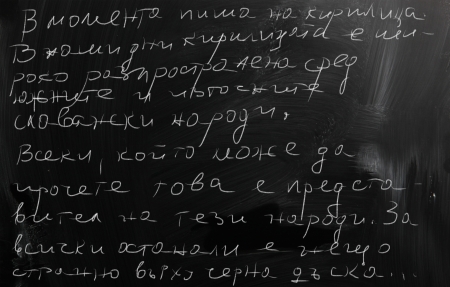 В момента пиша на кирилица.
В наши дни кирилицата е ши-
роко разпространена сред
южните и източните
славянски народи.
Всеки, който може да
прочете това е предста-
вител на тези народи. За
всички останали е нещо
странно върху черна дъска...